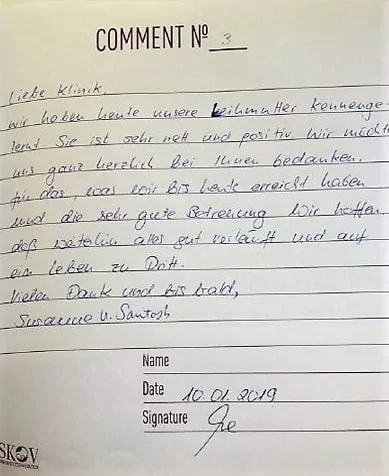 COMMENT № 3
Liebe Klinik,
wir haben heute unsere Leihmutter kennenge-
lernt. Sie ist sehr nett und positiv. Wir möcht
uns ganz herzlich bei Ihnen bedanken,
für das was wir bis heute erreicht haben
und die sehr gute Betreuung. Wir hoffen,
daß weiterhin alles gut verläuft und auf
ein Leben zu Dritt.
Vielen Dank und bis bald,
Susanne u. Santosh
Name
Date 10.01.2019
Signature
SKOV